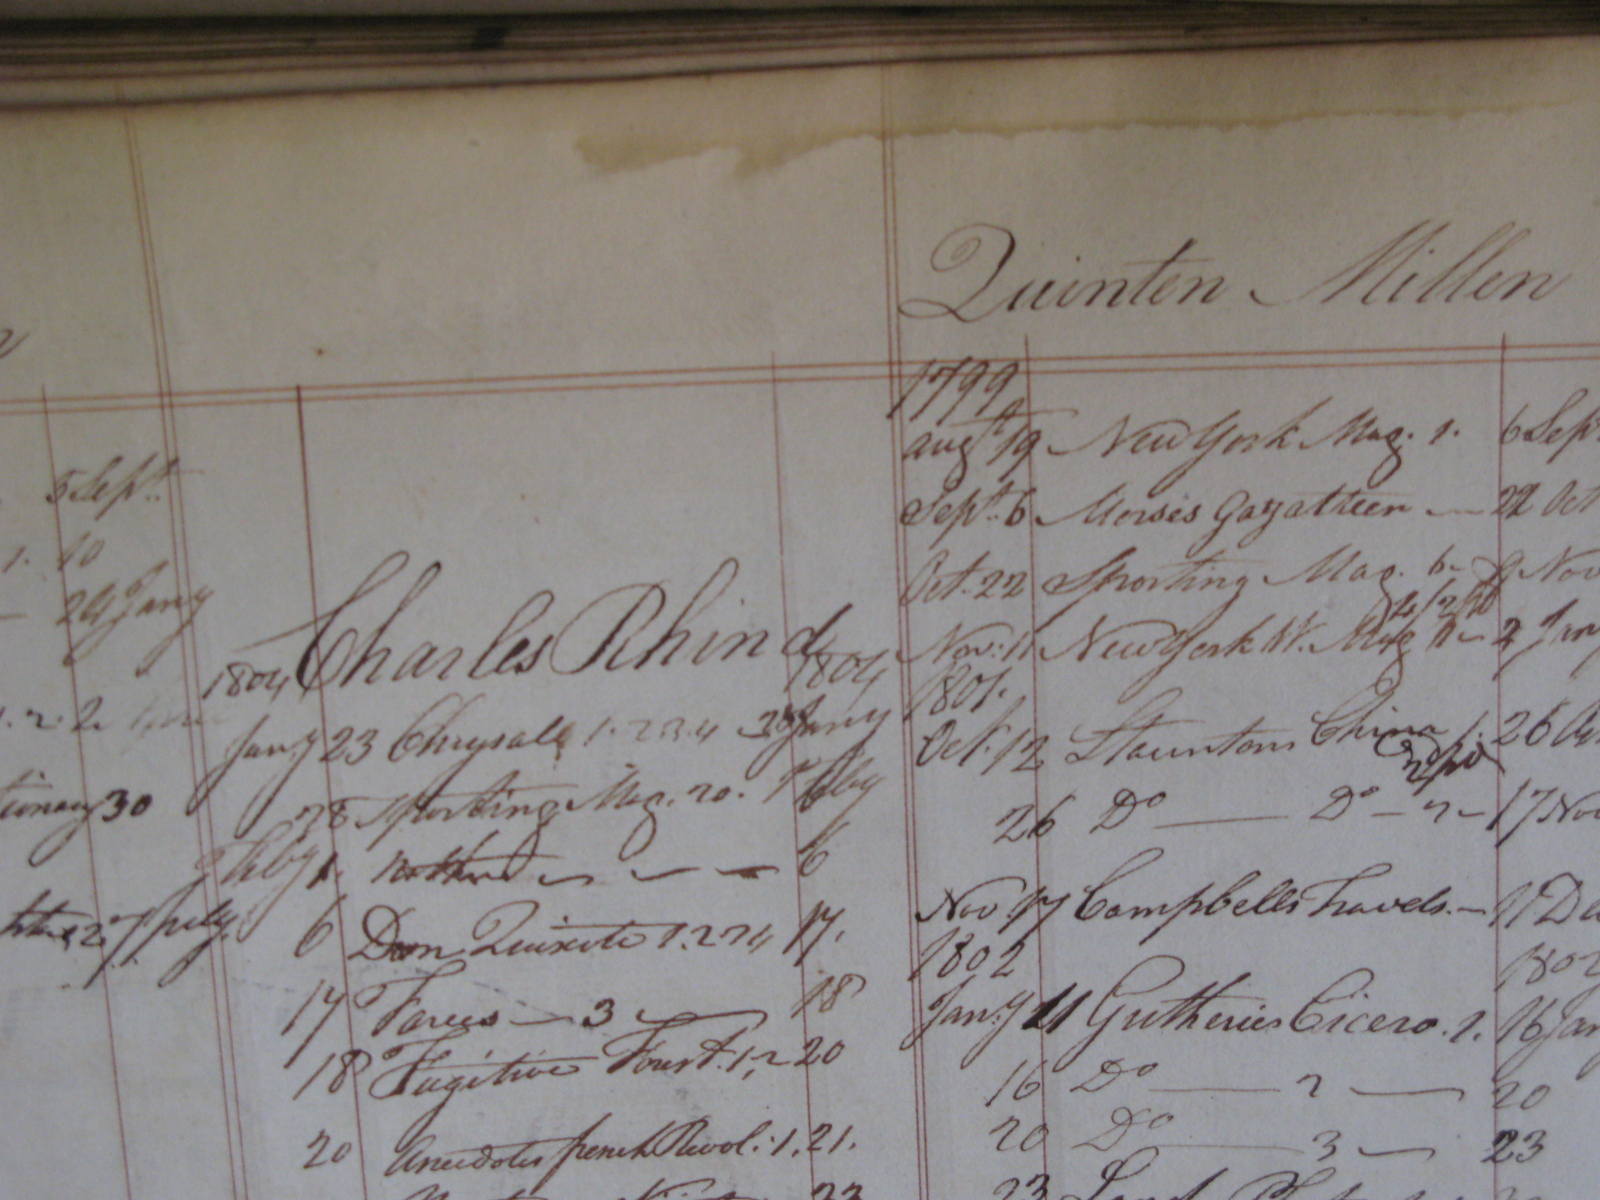 5 Sept.
1. 10
24 Jany
1. 2. 2.
30
27 July
Charles Rhind
1804 1804
Jany 23 Chrysal 1. 2 3. 4 28 Jany
28 Sporting Mag. 20. 1 Feby
Feby 1. 6
6 Don Quixote 1. 2 3 4 17.
17 Farces — 3 — 18
18 Fugitive 1, 2 20
20 Anecdotes french Revol. 1. 21.
Quinten Millen
1799
Augt 19 New York Mag. 1. 6 Sept
Sept. 6 Morses Gazatteer — 22 Oct
Oct. 22 Sporting Mag. 6 – 9 Nov
Nov. 11 New York W. Mag – 2 Jany
1801.
Oct. 12 Stauntons China 1. 26
26 Do — Do – 2 – 17 Nov
Nov. 17 Campbells Travels. – 11 De
1802 1802
Jany 11 Gutheries Cicero. 1. 16 Jan
16 Do — 2 — 20
20 Do — 3 — 23
23